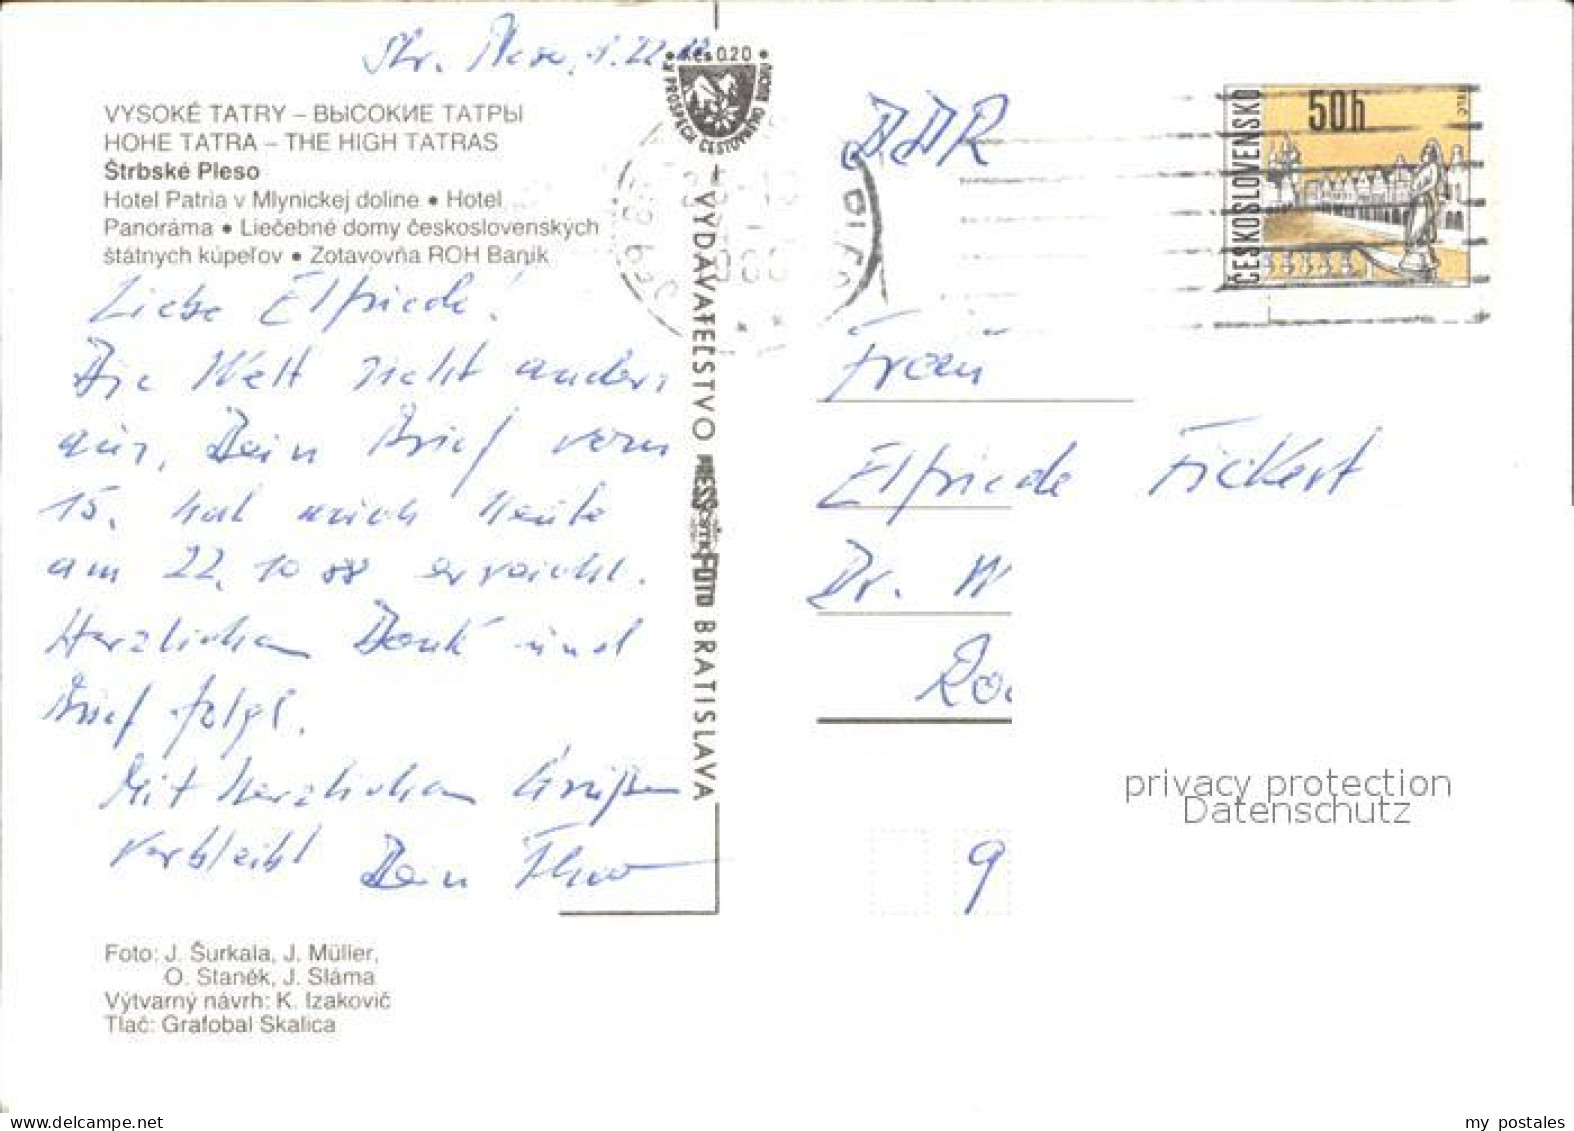 Str. Pleso,
Kčs 0.20
V PROSPECH CESTOVNÉHO RUCHU
VYSOKÉ TATRY – ВЫСОКИЕ ТАТРЫ
HOHE TATRA – THE HIGH TATRAS
Štrbské Pleso
Hotel Patria v Mlynickej doline • Hotel
Panoráma • Liečebné domy československých
štátnych kúpeľov • Zotavovňa ROH Baník
Liebe Elfriede!
Die Welt sieht anders
aus, Dein Brief vom
15. hat mich heute
am 22. 10 88 erreicht.
Herzlichen Dank und
Brief folgt.
Mit herzlichen Grüßen
verbleibt Dein
Foto: J. Šurkala, J. Müller,
O. Staněk, J. Sláma
Výtvarný návrh: K. Izakovič
Tlač: Grafobal Skalica
VYDAVATEĽSTVO PRESSFOTO BRATISLAVA
DDR
ČESKOSLOVENSKO
50h
TELČ
Frau
Elfriede Fickert
Dr. W
Ro
9
privacy protection
Datenschutz
my postales